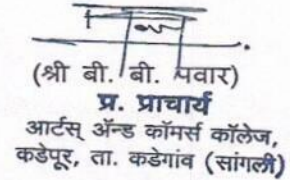 (श्री बी. बी. पवार)
प्र. प्राचार्य
आर्टस् ॲन्ड कॉमर्स कॉलेज,
कडेपूर, ता. कडेगांव (सांगली)